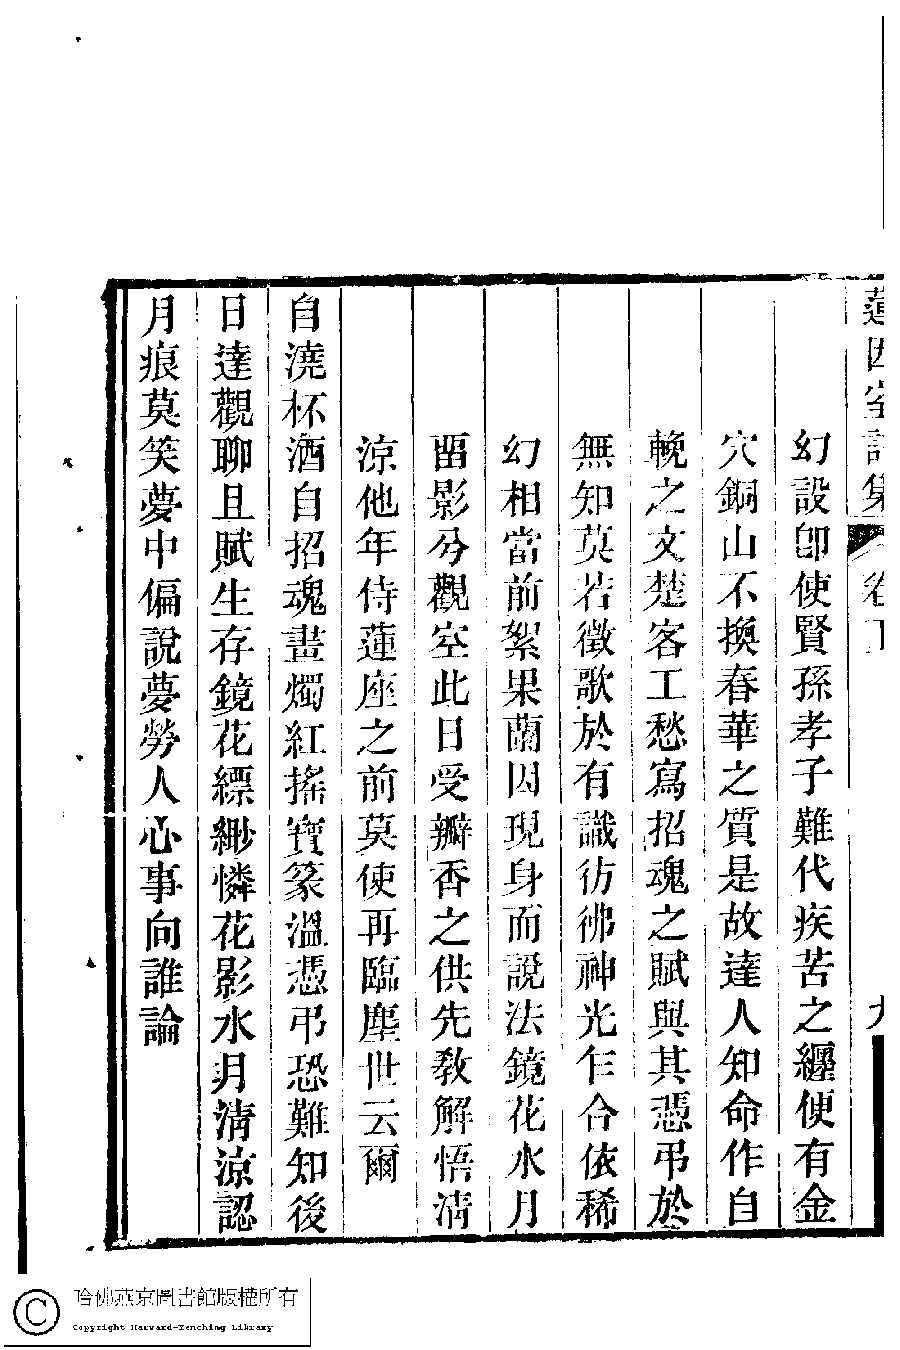 蓮因室詩集 卷下 九
幻設卽使賢孫孝子難代疾苦之纒便有金
穴銅山不換春華之質是故達人知命作自
輓之文楚客工愁寫招魂之賦與其憑弔於
無知莫若徵歌於有識彷彿神光乍合依稀
幻相當前絮果蘭因現身而說法鏡花水月
畱影分觀空此日受瓣香之供先敎解悟淸
涼他年侍蓮座之前莫使再臨塵世云爾
自澆杯酒自招魂畫燭紅搖寶篆溫憑弔恐難知後
日達觀聊且賦生存鏡花縹緲憐花影水月淸涼認
月痕莫笑夢中偏說夢勞人心事向誰論
哈佛燕京圖書館版權所有
Copyright Harvard-Yenching Library